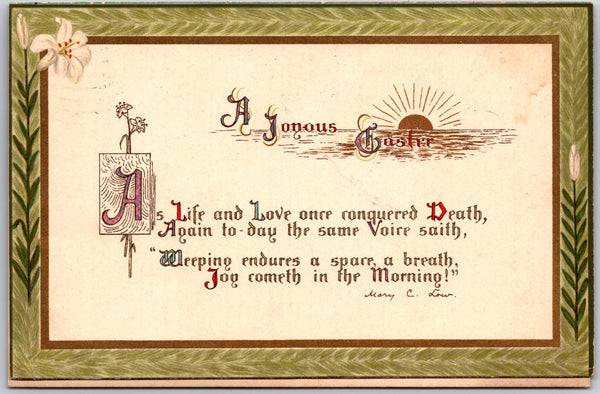 A Joyous Easter
As Life and Love once conquered Death,
Again to-day the same Voice saith,
"Weeping endures a space, a breath,
Joy cometh in the Morning!"
Mary C. Low.